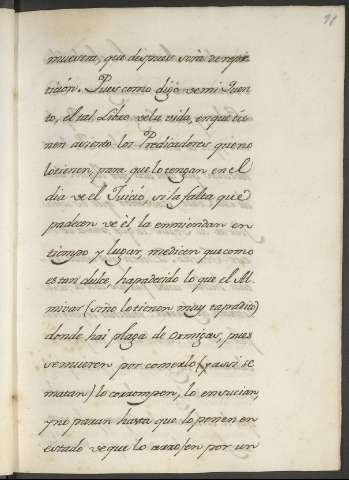 91
muevera, que despues seria de repe
ticion. Pues como digo se mi Quen
to, el tal Libro de la vida, en que tie
nen aviento los Predicadores que no
lo tienen, para que lo tengan en el
dia de el Juicio, si la falta que
padecen de él la enmiendan en
tiempo y lugar, me dicen que como
es tan dulce, ha padecido lo que el Al
mivar (si no lo tienen muy tapadito)
donde hai plaga de Ormigas, pues
se mueren por comerlo (y assi se
matan) lo corrompen, lo ensucian,
y no paran hasta que lo ponen en
estado de que lo arrojen por un